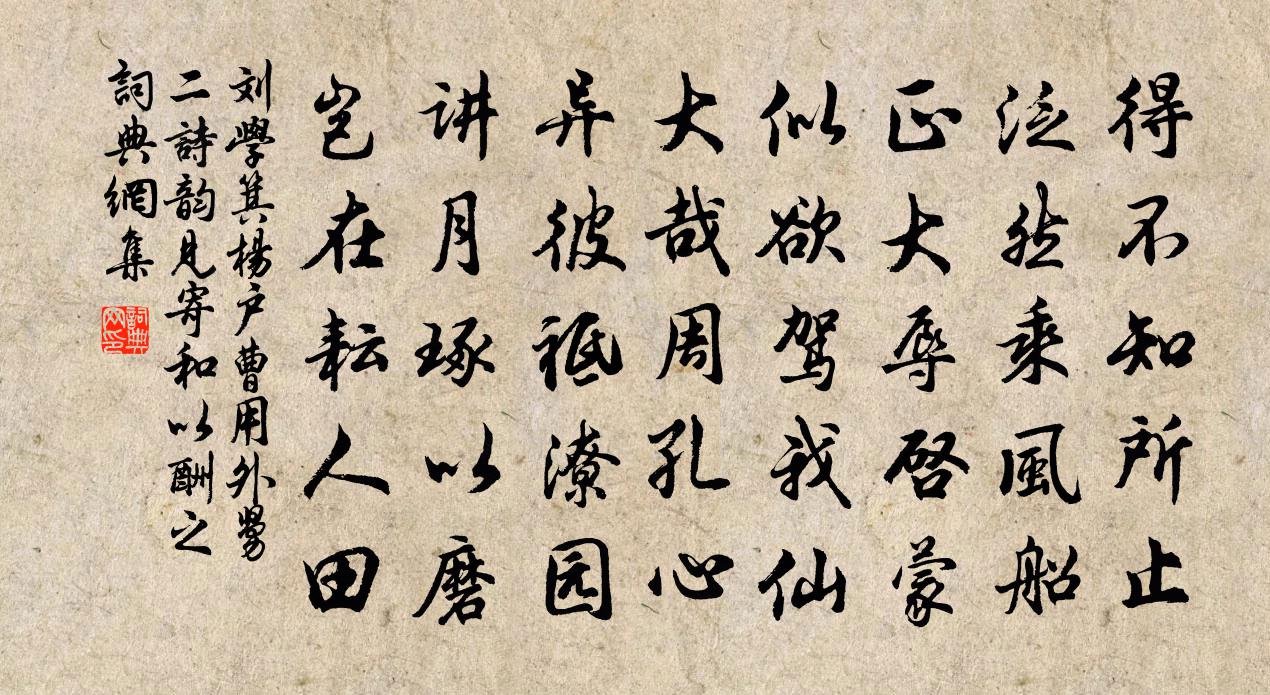 得不知所止
泛然乘風船
正大辱啓蒙
似欲驾我仙
大哉周孔心
异彼祗潦园
讲月琢以磨
岂在耘人田
刘學箕楊户曹用外舅
二詩韵見寄和以酬之
詞典網集
詞典
网印